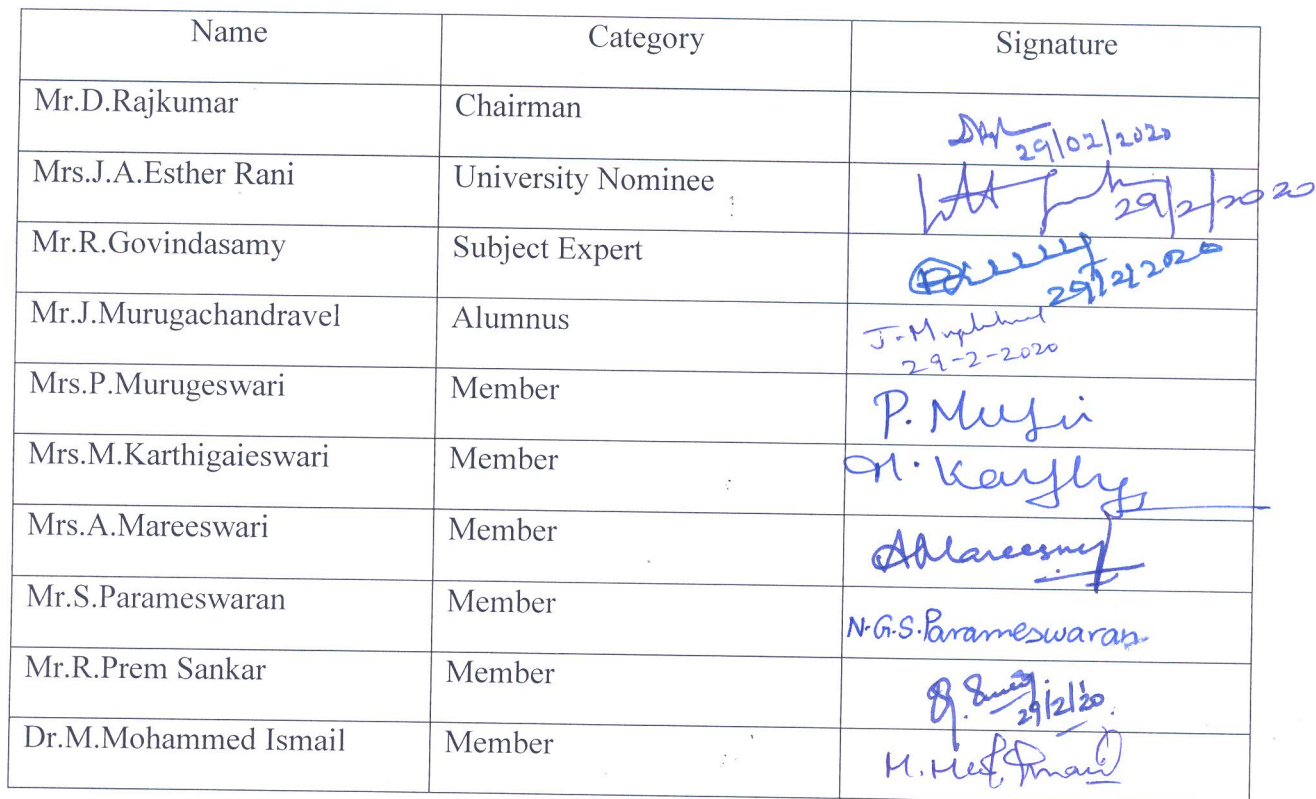 Name Category Signature
Mr.D.Rajkumar Chairman
29/02/2020
Mrs.J.A.Esther Rani University Nominee 29/2/2020
Mr.R.Govindasamy Subject Expert 29/2/2020
Mr.J.Murugachandravel Alumnus
29-2-2020
Mrs.P.Murugeswari Member P.
Mrs.M.Karthigaieswari Member M.
Mrs.A.Mareeswari Member
Mr.S.Parameswaran Member N.G.S.Parameswaran
Mr.R.Prem Sankar Member
29/2/20
Dr.M.Mohammed Ismail Member M.